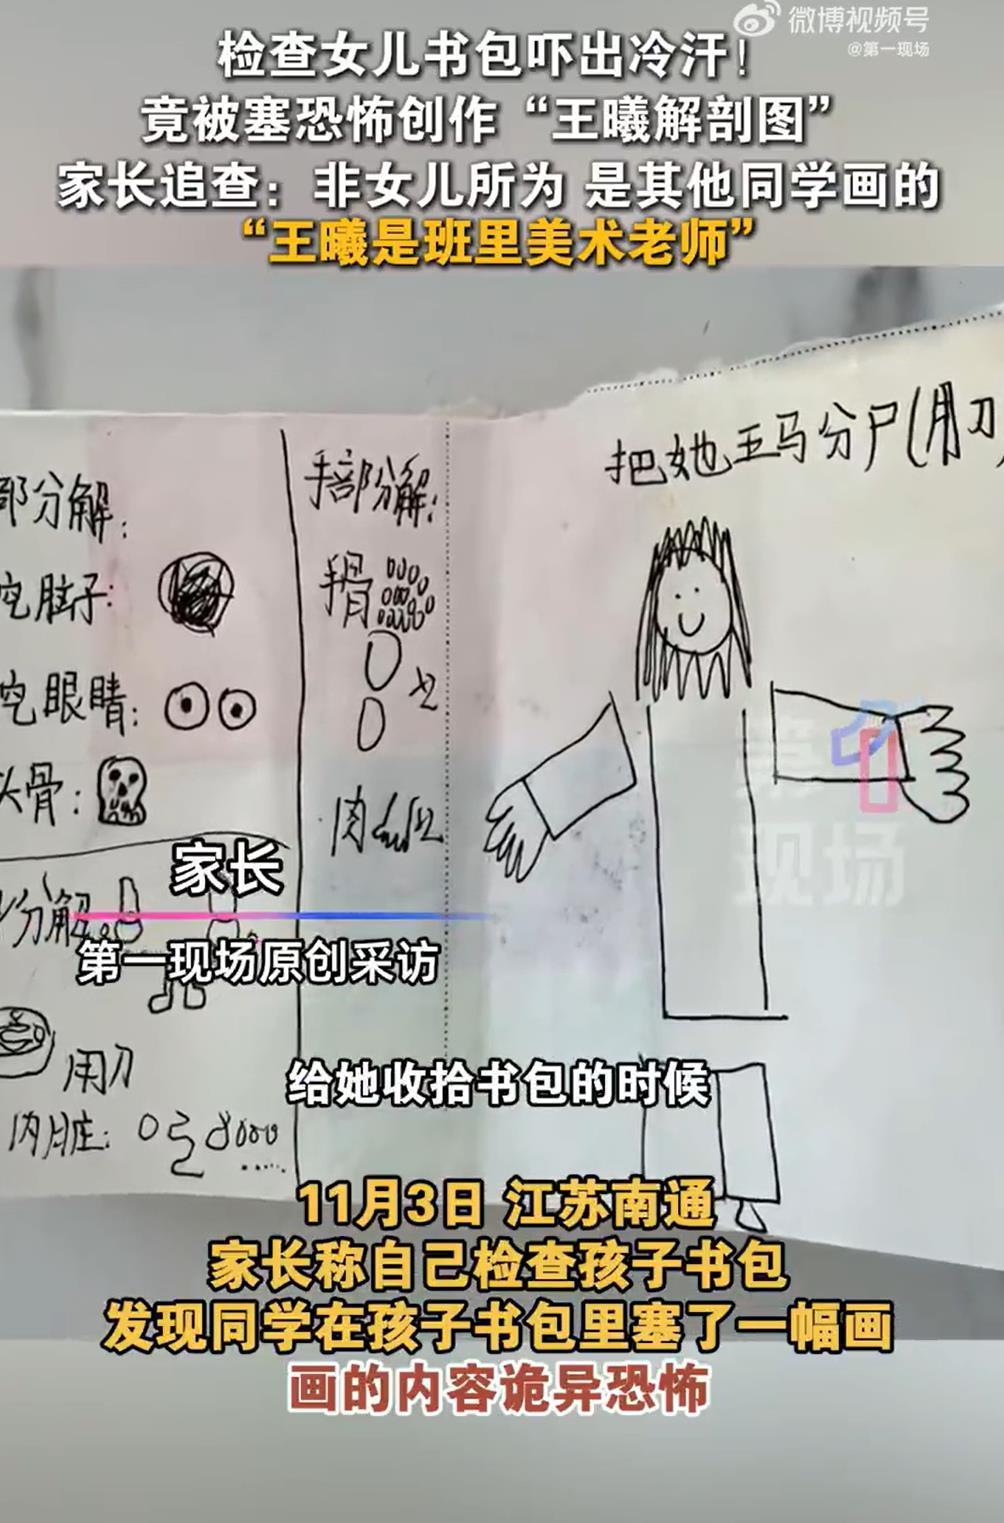 微博视频号
@第一现场
检查女儿书包吓出冷汗！
竟被塞恐怖创作“王曦解剖图”
家长追查：非女儿所为 是其他同学画的
“王曦是班里美术老师”
把她五马分尸(用刀)
部分解：
手部分解：
挖脑子：
手骨
挖眼睛：
x2
头骨：
肉
x2
第1现场
家长
分解
第一现场原创采访
用刀
给她收拾书包的时候
内脏：
11月3日 江苏南通
家长称自己检查孩子书包
发现同学在孩子书包里塞了一幅画
画的内容诡异恐怖